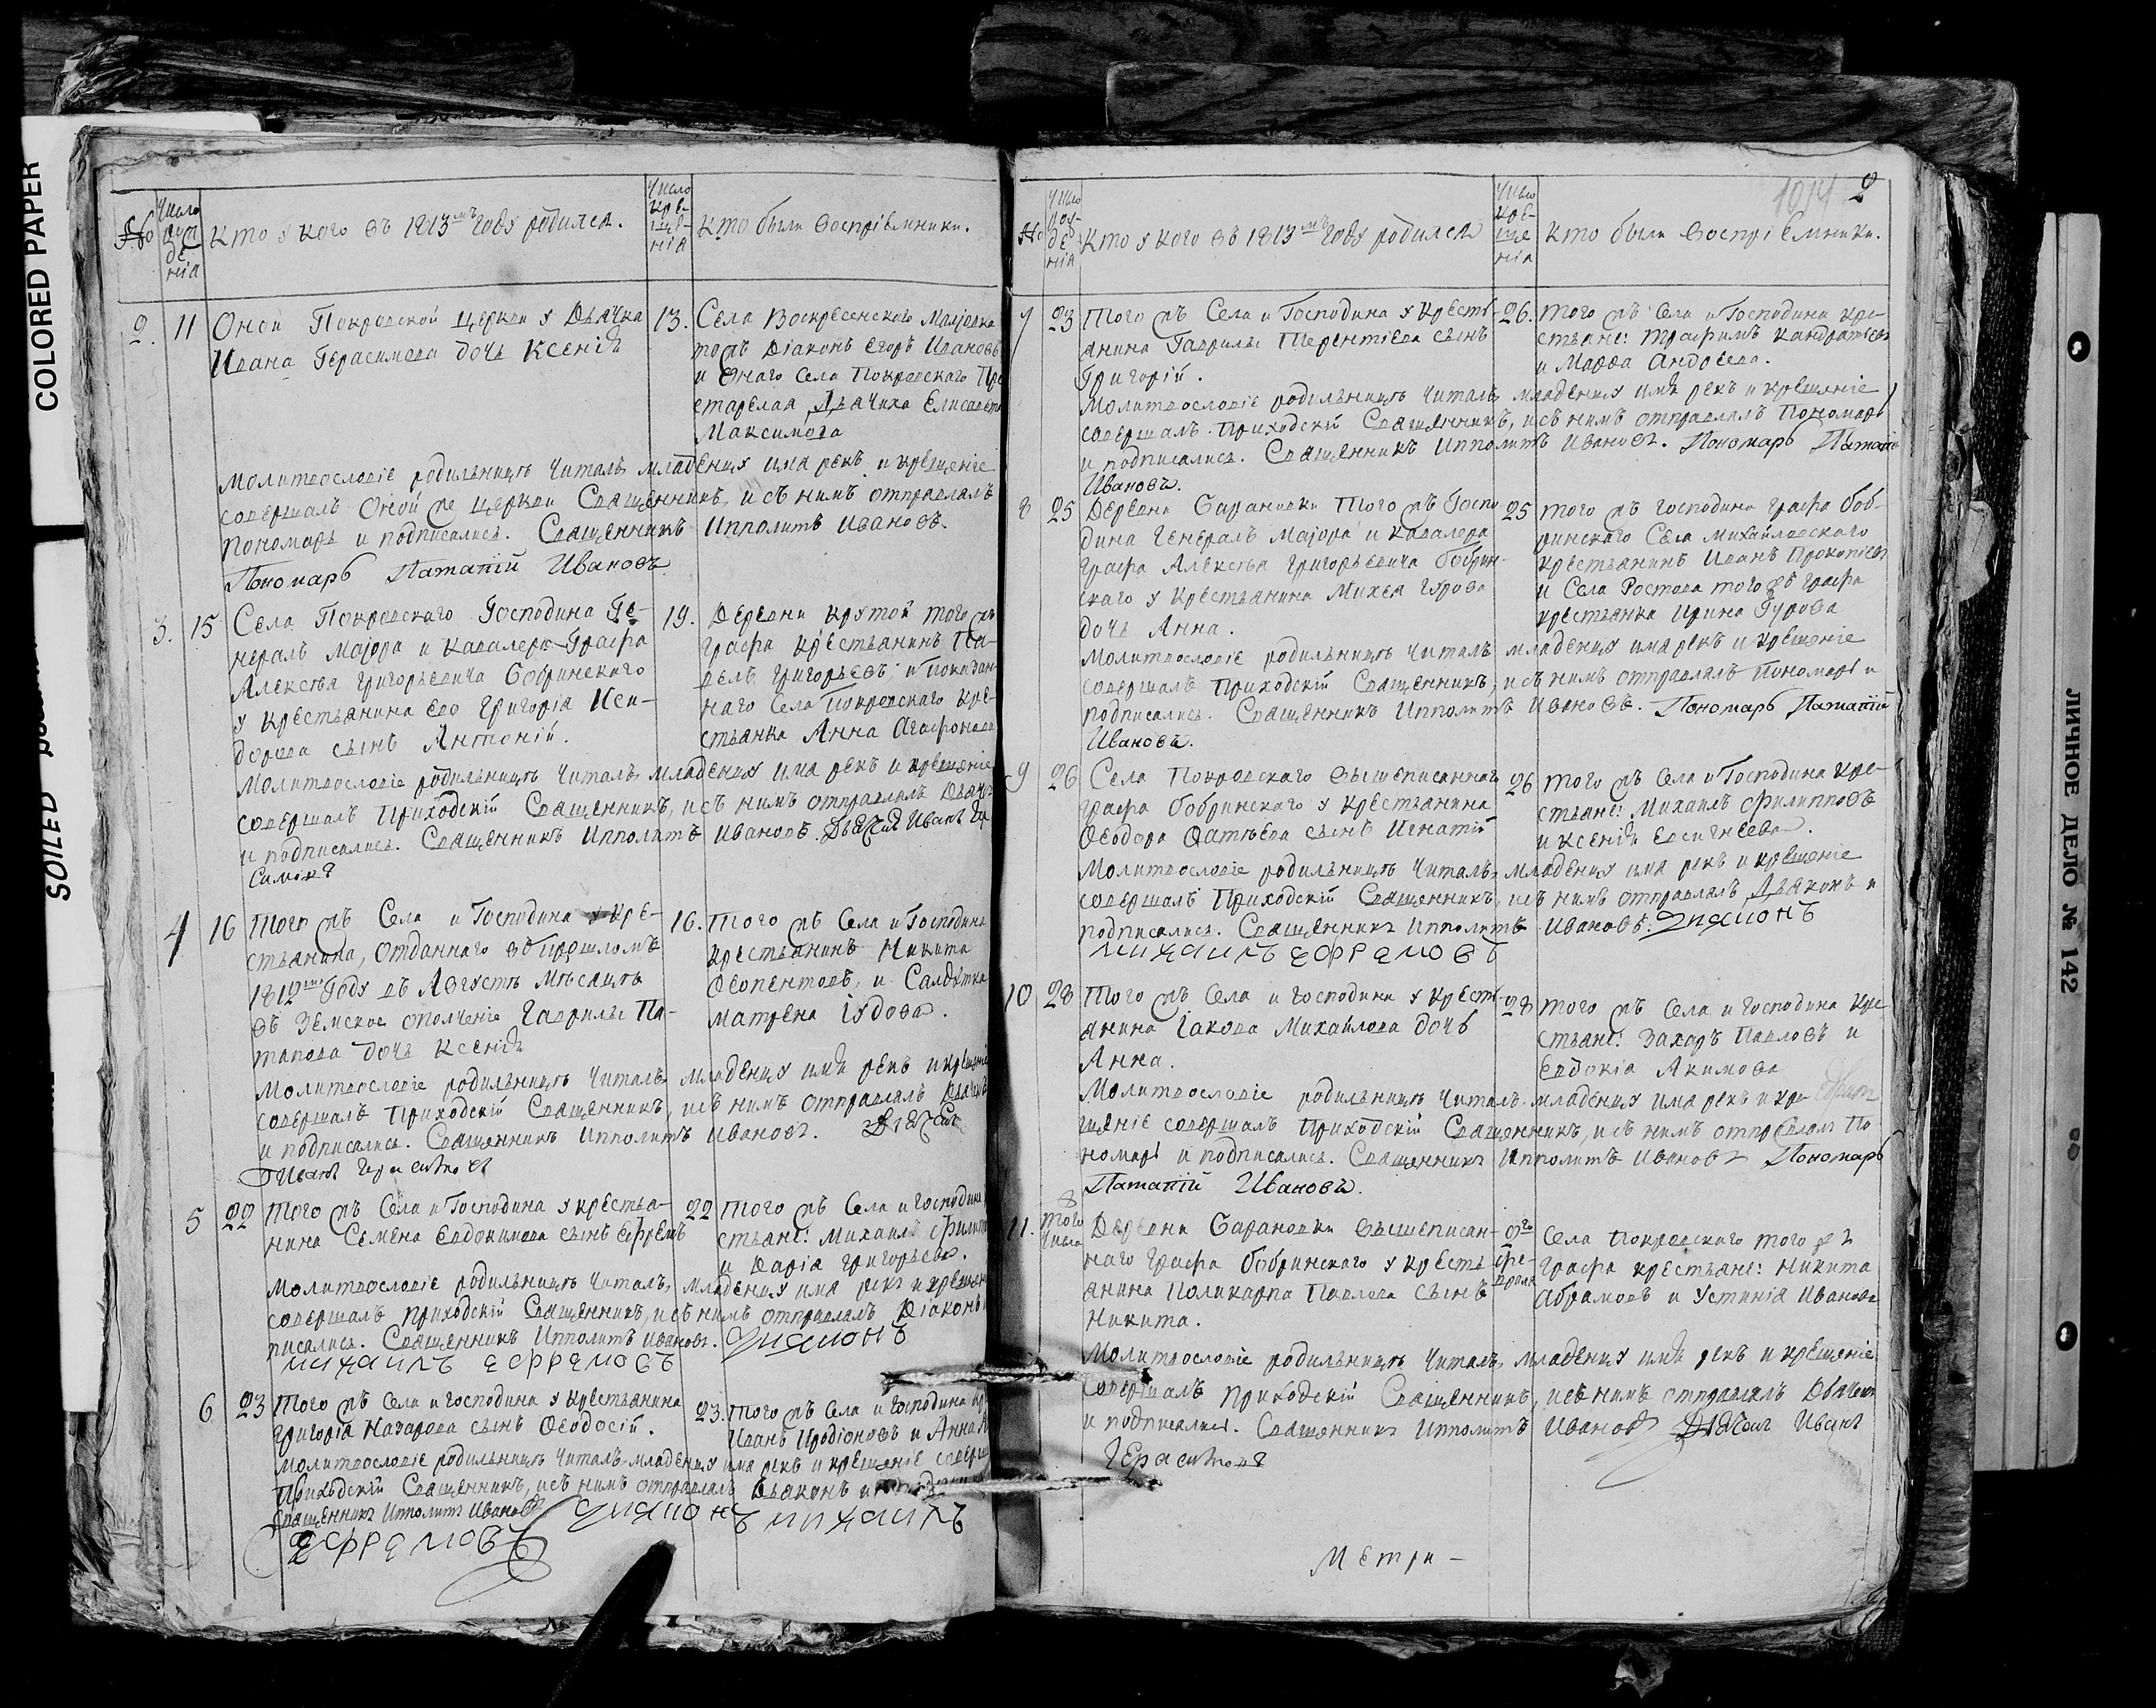 COLORED PAPER
SOILED
ЛИЧНОЕ ДЕЛО № 142
№
Число рождения
Кто у кого въ 1813мъ году родился.
Число крещенія
Кто были воспріемники.
2. 11 Оной Покровской церкви у Дьячка
Ивана Герасимова дочь Ксенія
13. Села Воскресенскаго Маіовка
тожъ Діаконъ Егоръ Ивановъ
и онаго Села Покровскаго Пре
старелая Дьячиха Елисавета
Максимова
Молитвословіе родильницѣ читалъ, младенцу имя рекъ и крещеніе
совершалъ Оной же церкви Священникъ, и съ нимъ отправлялъ
Пономарь и подписались. Священникъ Ипполитъ Ивановъ.
Пономарь Патапій Ивановъ
3. 15 Села Покровскаго Господина Ге-
нералъ Маіора и Кавалера Графа
Алексѣя Григорьевича Бобринскаго
у крестьянина Его Григорія Иси-
дорова сынъ Антоній.
19. Деревни Крутой того жъ
графа крестьянинъ Па-
велъ Григорьевъ, и показан
наго Села Покровскаго кре-
стьянка Анна Агафонова
Молитвословіе родильницѣ читалъ, младенцу имя рекъ и крещеніе
совершалъ Приходскій Священникъ, и съ нимъ отправлялъ Дьяч
и подписались. Священникъ Ипполитъ Ивановъ. Дьячекъ Иванъ Гера
симовъ
4 16 Того жъ Села и Господина у кре-
стьянина, отданнаго въ прошломъ
1812мъ Году въ Августѣ мѣсяцѣ
въ Земское ополченіе Гаврилы По-
тапова дочь Ксенія
16. Того жъ Села и Господина
крестьянинъ Никита
Ѳеопентовъ, и Салдатка
Матрена Іудова.
Молитвословіе родильницѣ читалъ, младенцу имя рекъ и крещеніе
совершалъ Приходскій Священникъ, и съ нимъ отправлялъ Дьячекъ
и подписались. Священникъ Ипполитъ Ивановъ. Дьячекъ
Иванъ Герасимовъ
5 22 Того жъ Села и Господина у крестья-
нина Семена Евдокимова сынъ Ефремъ
22 Того жъ Села и господина
стьяне: Михаилъ Филип
и Дарія Григорьева.
Молитвословіе родильницѣ читалъ, младенцу имя рекъ и крещен
совершалъ приходскій Священникъ, и съ нимъ отправлялъ Діаконъ
писались. Священникъ Ипполитъ Ивановъ. Диаконъ
Михаилъ Ефремовъ
6 23 Того жъ Села и господина у крестьянина
Григорія Назарова сынъ Ѳеодосій.
23. Того жъ Села и господина кр
Иванъ Иродіоновъ и Анна
Молитвословіе родильницѣ читалъ, младенцу имя рекъ и крещеніе соверш
Приходскій Священникъ, и съ нимъ отправлялъ Дьяконъ и
Священникъ Ипполитъ Ивановъ Диаконъ Михаилъ
Ефремовъ
1014 2
№
Число рожденія
Кто у кого въ 1813мъ году родился
Число крещенія
Кто были воспріемники.
7 23 Того жъ Села и Господина у кресть-
янина Гаврилы Терентіева сынъ
Григорій.
26. Того жъ Села и Господина кре-
стьяне: Трофимъ Кандратьевъ
и Марѳа Андреева.
Молитвословіе родильницѣ читалъ, младенцу имя рекъ и крещеніе
совершалъ Приходскій Священникъ, и съ нимъ отправлялъ Пономарь
и подписались. Священникъ Ипполитъ Ивановъ. Пономарь Патапій
Ивановъ.
8 25 Деревни Барановки того жъ Госпо
дина Генералъ Маіора и Кавалера
графа Алексѣя Григорьевича Бобрин-
скаго у крестьянина Михея Гурова
дочь Анна.
25 Того жъ господина графа Боб-
ринскаго Села Михайловскаго
крестьянинъ Иванъ Прокопіевъ
и Села Ростова того жъ графа
крестьянка Ирина Гурова
Молитвословіе родильницѣ читалъ, младенцу имя рекъ и крещеніе
совершалъ Приходскій Священникъ, и съ нимъ отправлялъ Пономарь и
подписались. Священникъ Ипполитъ Ивановъ. Пономарь Патапій
Ивановъ.
9 26 Села Покровскаго вышеписаннаго
графа Бобринскаго у крестьянина
Ѳеодора Ѳатѣева сынъ Игнатій
26 Того жъ Села и Господина кре-
стьяне: Михаилъ Филипповъ
и Ксенія Евсигнеева.
Молитвословіе родильницѣ читалъ, младенцу имя рекъ и крещеніе
совершалъ Приходскій Священникъ, и съ нимъ отправлялъ Дьяконъ и
подписались. Священникъ Ипполитъ Ивановъ. Диаконъ
Михаилъ Ефремовъ
10 28 Того жъ Села и господина у кресть-
янина Іакова Михайлова дочь
Анна.
28 Того жъ Села и господина кре
стьяне: Захаръ Павловъ и
Евдокія Акимова
Молитвословіе родильницѣ читалъ, младенцу имя рекъ и кре
щеніе совершалъ Приходскій Священникъ, и съ нимъ отправлялъ По
номарь и подписались. Священникъ Ипполитъ Ивановъ Пономарь
Патапій Ивановъ.
11. того числа Деревни Барановки вышеписан-
наго графа Бобринскаго у кресть
янина Поликарпа Павлова сынъ
Никита.
февраля Села Покровскаго того жъ
графа крестьяне: Никита
Абрамовъ и Устинія Иванова
Молитвословіе родильницѣ читалъ, младенцу имя рекъ и крещеніе
совершалъ приходскій Священникъ, и съ нимъ отправлялъ Дьячекъ
и подписались. Священникъ Ипполитъ Ивановъ Дьячекъ Иванъ
Герасимовъ
Метри-